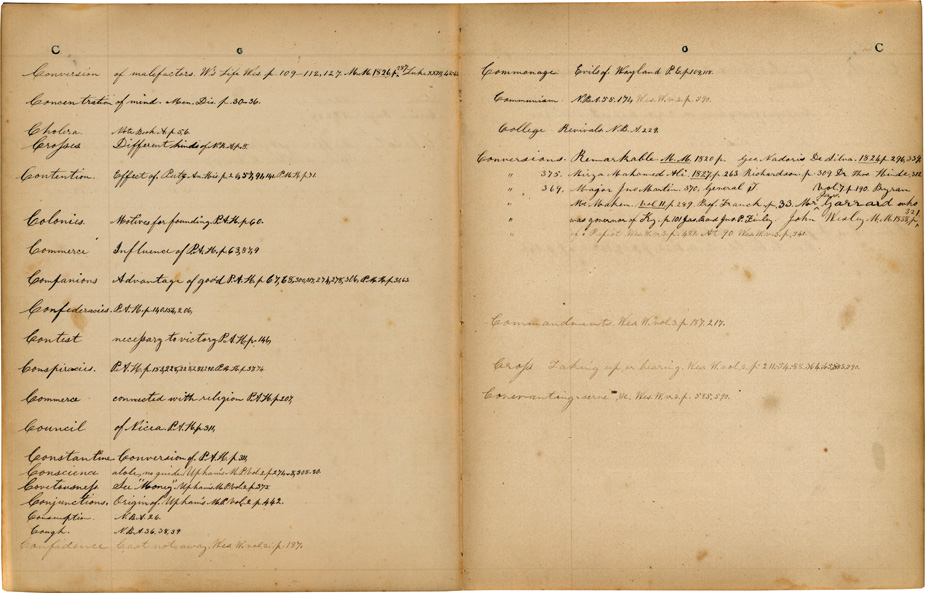 C o
Conversion of malefactors. W's Life Wes. p. 109-112, 127. M.M. 1826 p. 787 Luke
Concentration of mind. Men. Dis. p. 30-36.
Cholera Note Book A. p. 56.
Crosses Different kinds of N.B.A. p. 5.
Contention. Effect of
Colonies. Motives for founding. P.A.H. p. 60.
Commerce Influence of P.A.H. p. 63,
Companions Advantage of good P.A.H. p. 67, 68,
Confederacies. P.A.H. p.
Contest necessary to victory P.A.H. p. 146,
Conspiracies. P.A.H. p.
Commerce connected with religion P.A.H. p. 207,
Council of Nicea. P.A.H. p. 311,
Constantine Conversion of. P.A.H. p. 311,
Conscience alone, no guide. Upham's M.P. vol. 2. p.
Covetousness See "Money" Upham's M.P. vol. 2. p. 275
Conjunctions. Origin of. Upham's M.P. vol. 2 p. 442.
Consumption. N.B.A. 26.
Cough. N.B.A. 36, 38, 39
Confidence Cast not away. Wes. W. vol. 2. p. 187.
o C
Commonage Evils of. Wayland P.E. p.
Communism N.B.A. 58. 174 Wes. W. v. 2. p. 590.
College Revivals. N.B.A. 229.
Conversions. Remarkable M.M. 1820 p. Geo. Nadoris De Silva. 1826 p. 296, 339.
" 375. Mirza Mahomed Ali. 1827 p. 263 Richardson. p. 309 Dr. Thos Hinde. 311
" 369. Major Jno Martin. 570. General T Vol. 7 p. 190. Byran
" McMahon. Vol 11. p. 289. Prof. Franck p. 33. Mr. Garrard who
" was governor of Ky. p. 101 Jas. Jno. P. Finley. John Wesley M.M. 1858, p. 321
" of a Papist Wes. W. v. 2. p. 482. At 90 Wes. W. v. 3. p. 341.
Commandments. Wes. W. vol. 3. p. 187. 217.
Cross Taking up or bearing. Wes. W. vol. 2. p.
Covenanting serve &c. Wes. W. v. 2. p. 585, 590.